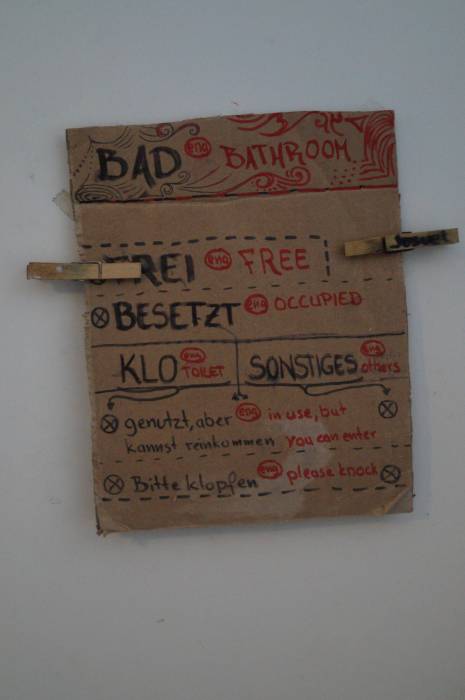 BAD eng BATHROOM
FREI eng FREE
BESETZT eng OCCUPIED
KLO eng TOILET SONSTIGES eng others
genutzt, aber eng in use, but
kannst reinkommen you can enter
Bitte klopfen eng please knock